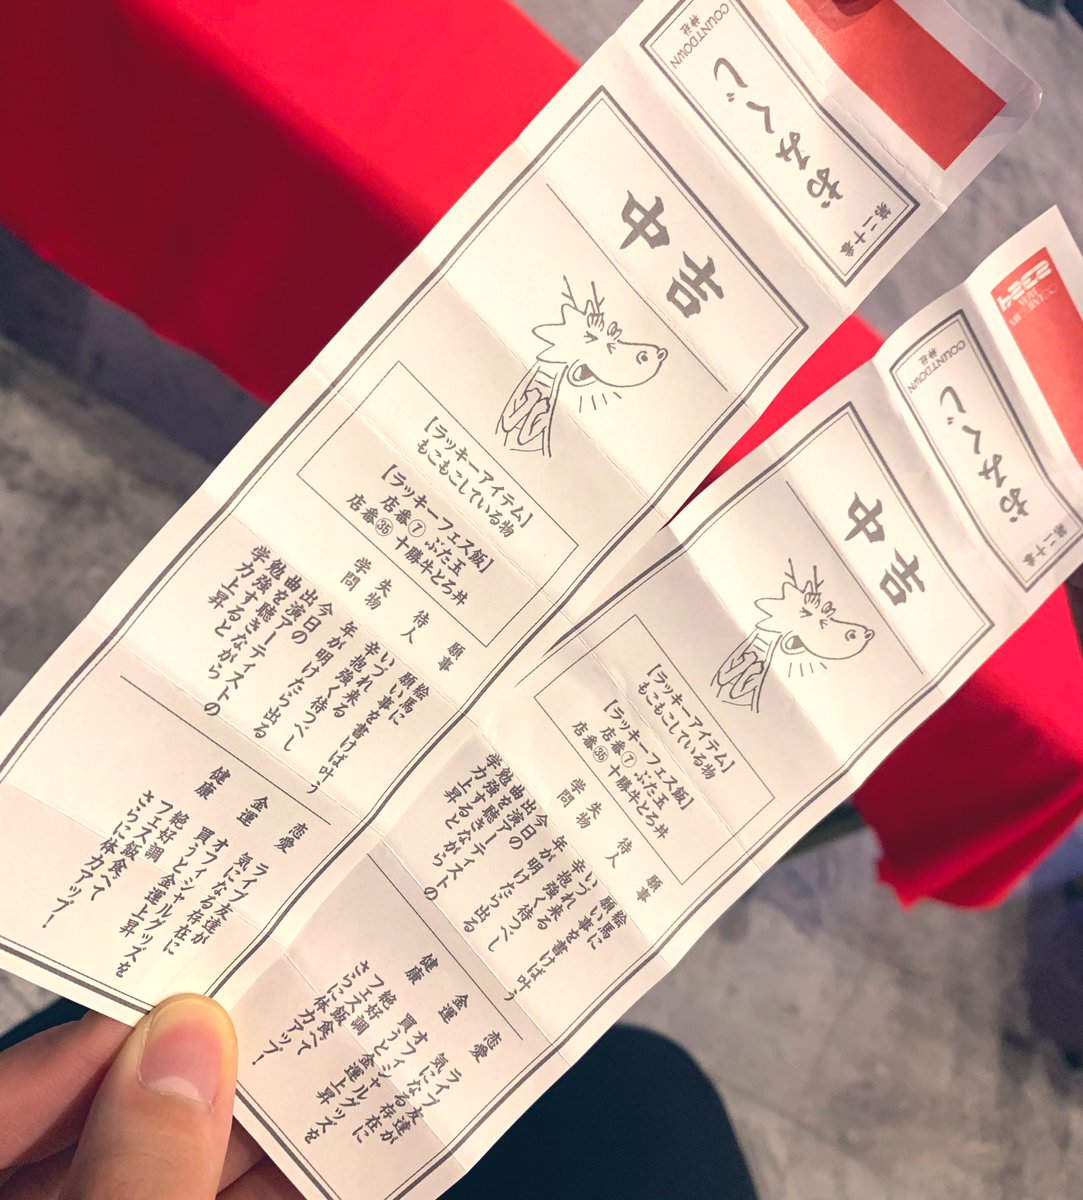 COUNTDOWN
神社
おみくじ
第二十番
中吉
【ラッキーアイテム】
もこもこしている物
【ラッキーフェス飯】
店番⑦ ぶた玉
店番㉟ 十勝牛とろ丼
願事
絵馬に
願い事を書けば叶う
待人
いづれ来る
辛抱強く待つべし
失物
年が明けたら出る
学問
今日の
出演アーティストの
曲を聴きながら
勉強すると
学力上昇
恋愛
ライブ友達が
気になる存在に
金運
オフィシャルグッズを
買うと金運上昇
健康
絶好調
フェス飯食べて
さらに体力アップ！
COUNTDOWN
神社
おみくじ
第二十番
中吉
【ラッキーアイテム】
もこもこしている物
【ラッキーフェス飯】
店番⑦ ぶた玉
店番㉟ 十勝牛とろ丼
願事
絵馬に
願い事を書けば叶う
待人
いづれ来る
辛抱強く待つべし
失物
年が明けたら出る
学問
今日の
出演アーティストの
曲を聴きながら
勉強すると
学力上昇
恋愛
ライブ友達が
気になる存在に
金運
オフィシャルグッズを
買うと金運上昇
健康
絶好調
フェス飯食べて
さらに体力アップ！